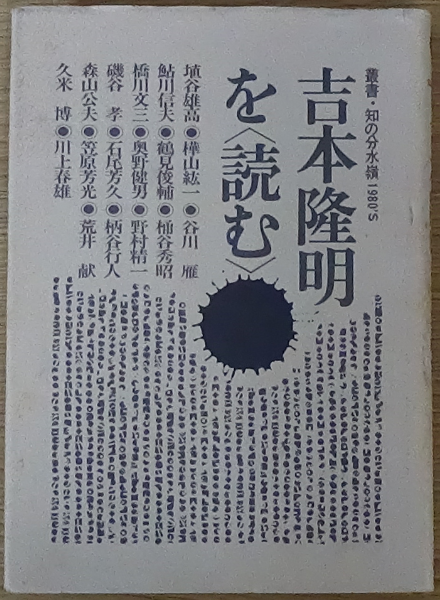 叢書・知の分水嶺1980'S
吉本隆明
を〈読む〉
埴谷雄高●樺山紘一●谷川 雁
鮎川信夫●鶴見俊輔●桶谷秀昭
橋川文三●奥野健男●野村精一
磯谷 孝●石尾芳久●柄谷行人
森山公夫●笠原芳光●荒井 献
久米 博●川上春雄